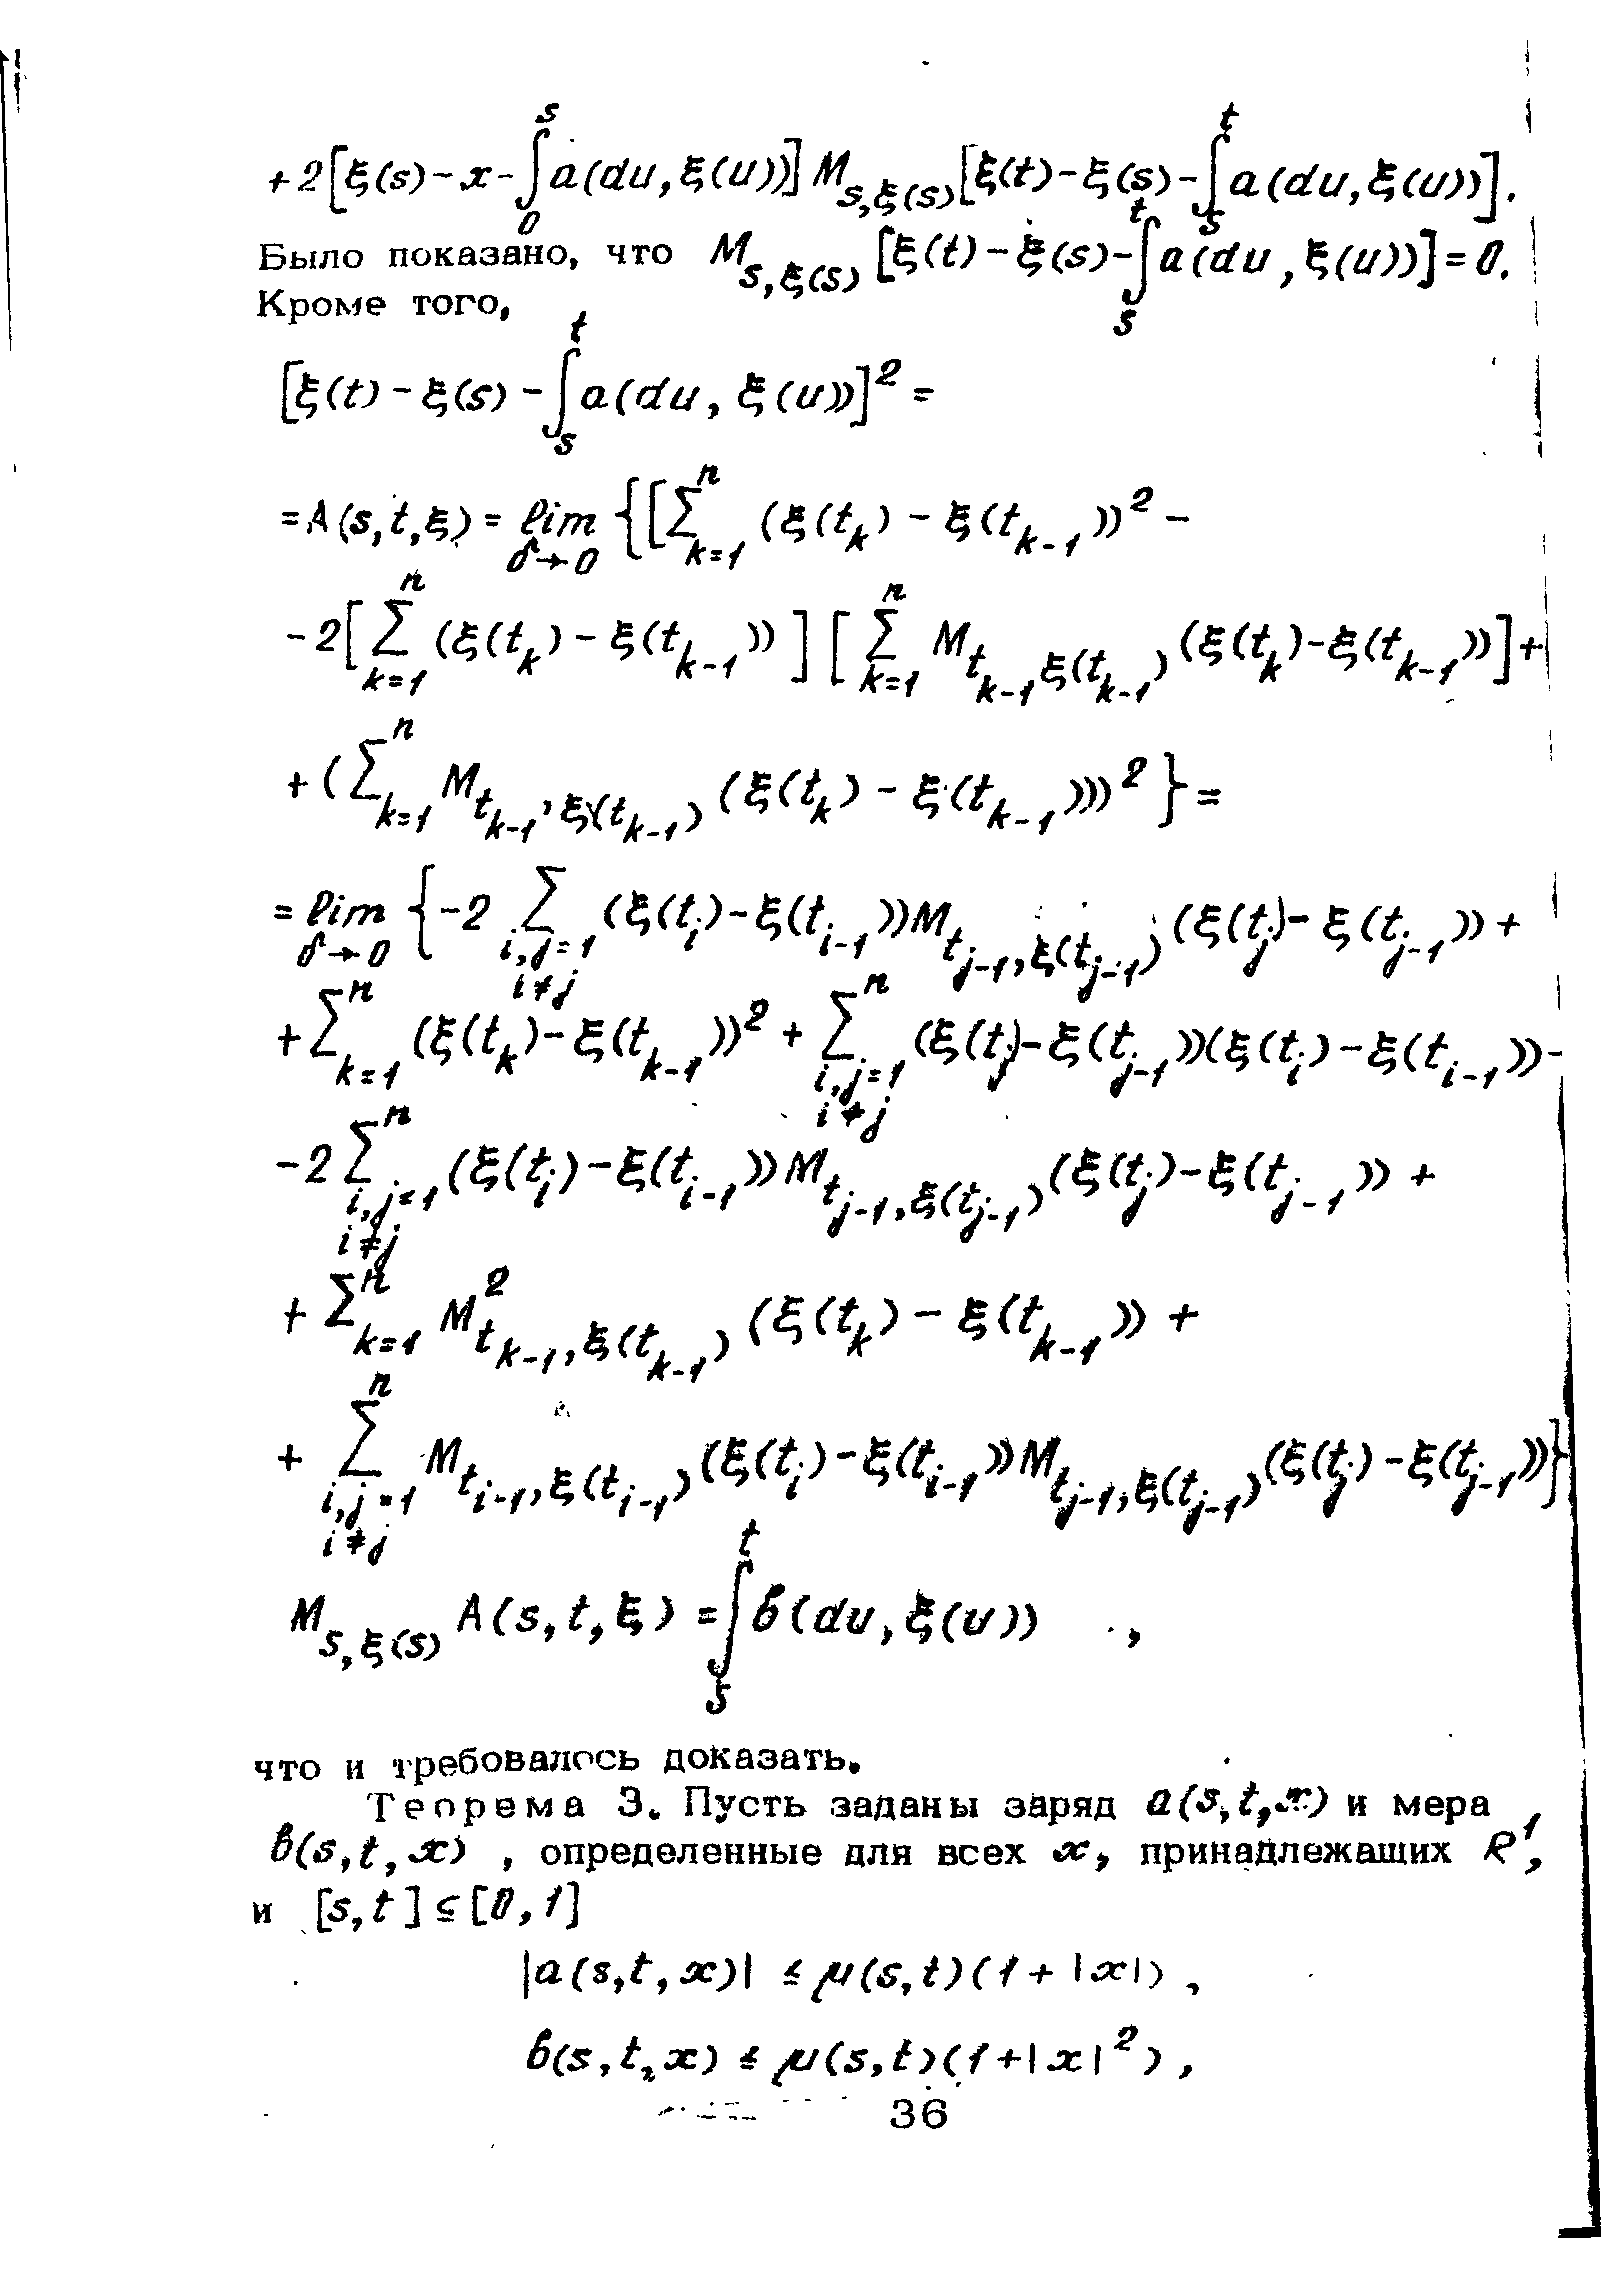 $+2[\xi(s)-x-\int_0^s a(du,\xi(u))] M_{s,\xi(s)}[\xi(t)-\xi(s)-\int_s^t a(du,\xi(u))].$
Было показано, что $M_{s,\xi(s)}[\xi(t)-\xi(s)-\int_s^t a(du,\xi(u))]=0.$
Кроме того,
$[\xi(t)-\xi(s)-\int_s^t a(du,\xi(u))]^2=$
$=A(s,t,\xi)=\lim_{\delta\to 0}\{[\sum_{k=1}^n(\xi(t_k)-\xi(t_{k-1}))^2-$
$-2[\sum_{k=1}^n(\xi(t_k)-\xi(t_{k-1}))][\sum_{k=1}^n M_{t_{k-1}\xi(t_{k-1})}(\xi(t_k)-\xi(t_{k-1}))]+$
$+(\sum_{k=1}^n M_{t_{k-1},\xi(t_{k-1})}(\xi(t_k)-\xi(t_{k-1})))^2\}=$
$=\lim_{\delta\to 0}\{-2\sum_{i,j=1 \atop i\neq j}(\xi(t_i)-\xi(t_{i-1}))M_{t_{j-1},\xi(t_{j-1})}(\xi(t_j)-\xi(t_{j-1}))+$
$+\sum_{k=1}^n(\xi(t_k)-\xi(t_{k-1}))^2+\sum_{i,j=1 \atop i\neq j}^n(\xi(t_j)-\xi(t_{j-1}))(\xi(t_i)-\xi(t_{i-1}))-$
$-2\sum_{i,j=1 \atop i\neq j}^n(\xi(t_i)-\xi(t_{i-1}))M_{t_{j-1},\xi(t_{j-1})}(\xi(t_j)-\xi(t_{j-1}))+$
$+\sum_{k=1}^n M^2_{t_{k-1},\xi(t_{k-1})}(\xi(t_k)-\xi(t_{k-1}))+$
$+\sum_{i,j=1 \atop i\neq j}^n M_{t_{i-1},\xi(t_{i-1})}(\xi(t_i)-\xi(t_{i-1}))M_{t_{j-1},\xi(t_{j-1})}(\xi(t_j)-\xi(t_{j-1}))\}$
$M_{s,\xi(s)}A(s,t,\xi)=\int_s^t b(du,\xi(u))$ ,
что и требовалось доказать.
Теорема 3. Пусть заданы заряд $a(s,t,x)$ и мера
$b(s,t,x)$ , определенные для всех $x$, принадлежащих $R^1$,
и $[s,t]\subseteq[0,1]$
$|a(s,t,x)|\leq\mu(s,t)(1+|x|)$ ,
$b(s,t,x)\leq\mu(s,t)(1+|x|^2)$ ,
36